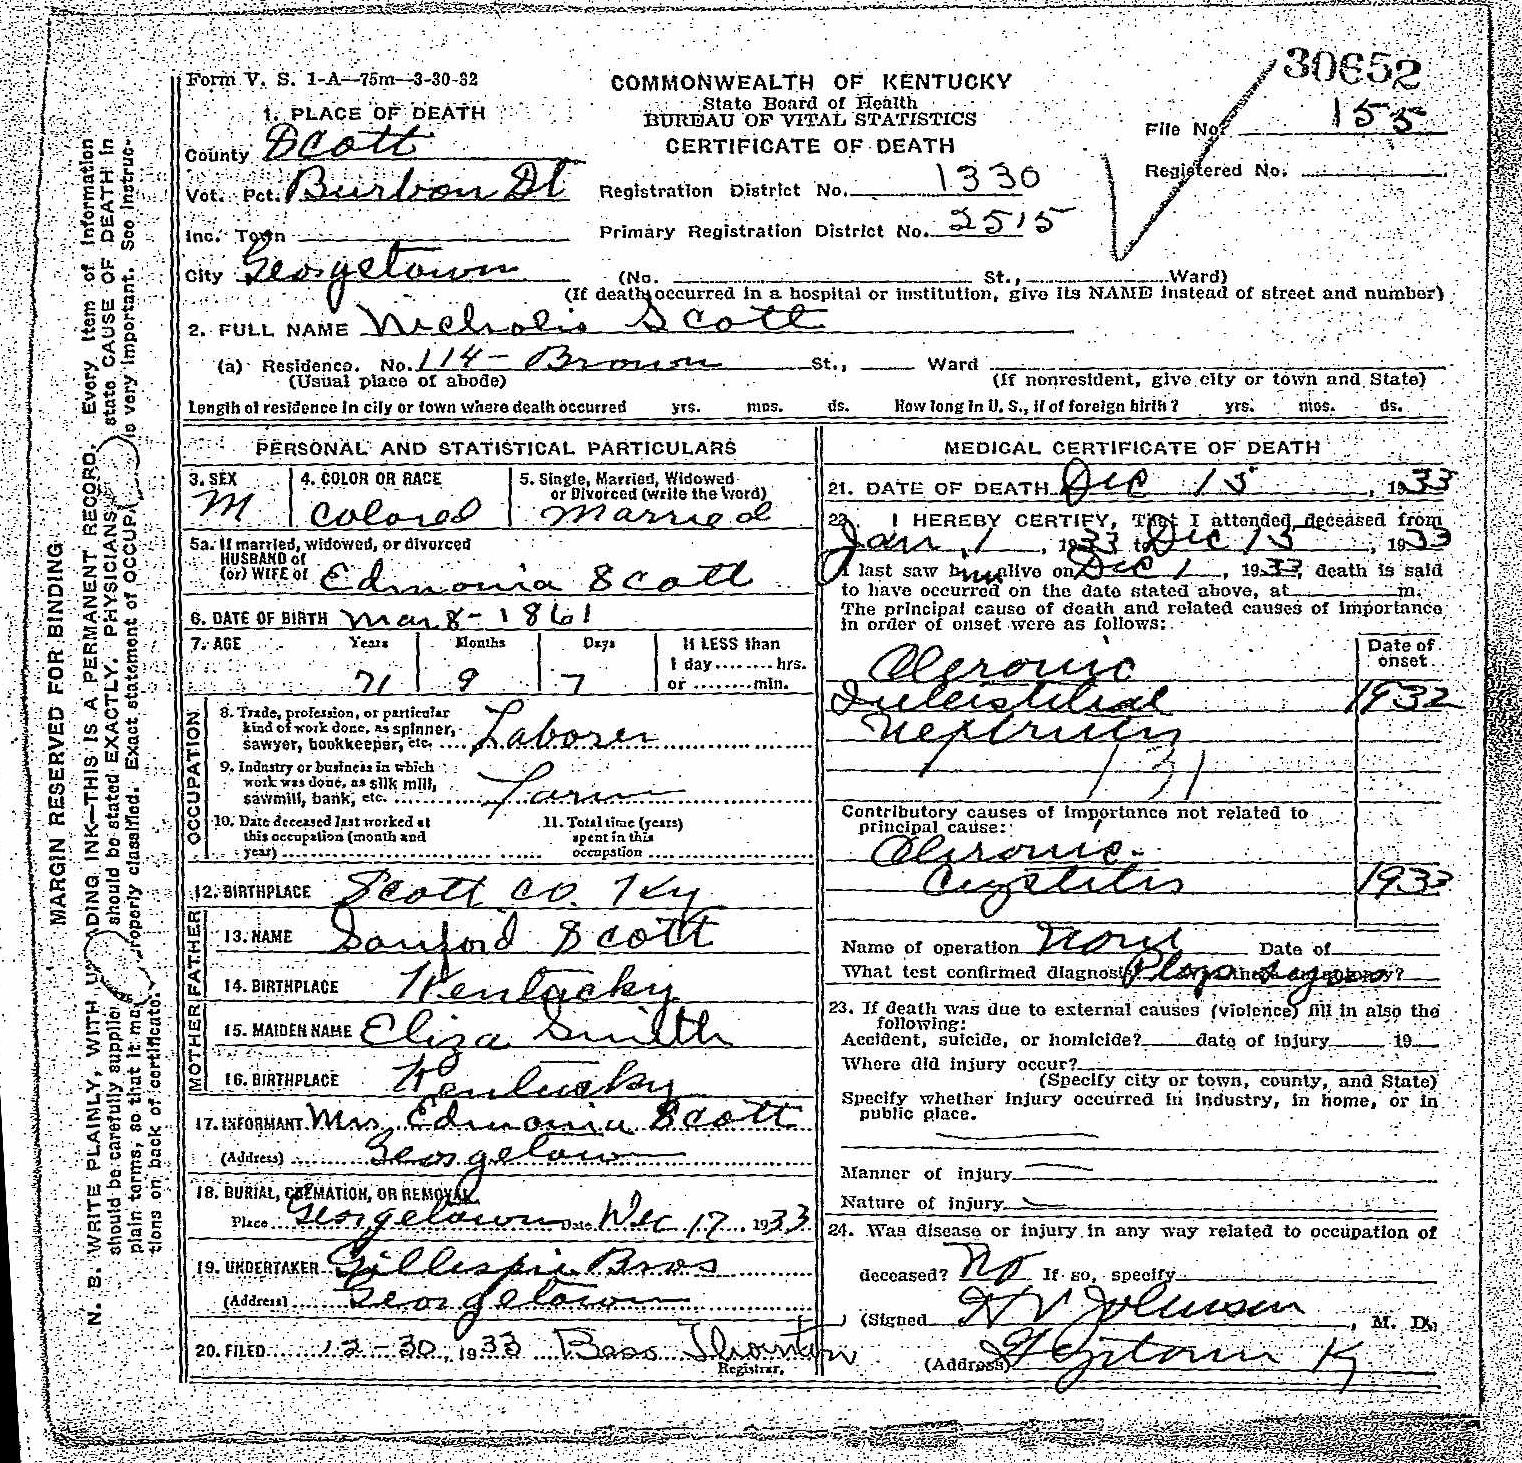 30652
Form V. S. 1-A—75m—3-30-32
COMMONWEALTH OF KENTUCKY
State Board of Health
BUREAU OF VITAL STATISTICS
CERTIFICATE OF DEATH
File No. 155
Registered No.
1. PLACE OF DEATH
County Scott
Vot. Pct. Burbon St
Registration District No. 1330
Inc. Town
Primary Registration District No. 2515
City Georgetown (No. St., Ward)
(If death occurred in a hospital or institution, give its NAME instead of street and number)
2. FULL NAME Nicholis Scott
(a) Residence. No. 114 - Brown St., Ward
(Usual place of abode) (If nonresident, give city or town and State)
Length of residence in city or town where death occurred yrs. mos. ds. How long in U. S., if of foreign birth? yrs. mos. ds.
PERSONAL AND STATISTICAL PARTICULARS
3. SEX M
4. COLOR OR RACE Colored
5. Single, Married, Widowed
or Divorced (write the word)
Married
5a. If married, widowed, or divorced
HUSBAND of
(or) WIFE of Edmonia Scott
6. DATE OF BIRTH Mar 8 - 1861
7. AGE Years Months Days If LESS than
1 day........hrs.
71 9 7 or ........min.
OCCUPATION
8. Trade, profession, or particular
kind of work done, as spinner,
sawyer, bookkeeper, etc. Laborer
9. Industry or business in which
work was done, as silk mill,
sawmill, bank, etc. Farm
10. Date deceased last worked at
this occupation (month and
year)
11. Total time (years)
spent in this
occupation
12. BIRTHPLACE Scott Co. Ky
FATHER
13. NAME Sanford Scott
14. BIRTHPLACE Kentucky
MOTHER
15. MAIDEN NAME Eliza Smith
16. BIRTHPLACE Kentucky
17. INFORMANT Mrs Edmonia Scott
(Address) Georgetown
18. BURIAL, CREMATION, OR REMOVAL
Place Georgetown Date Dec 17 1933
19. UNDERTAKER Gillespie Bros
(Address) Georgetown
20. FILED 12-30, 1933 Bess Thornton
Registrar.
MEDICAL CERTIFICATE OF DEATH
21. DATE OF DEATH Dec 15, 1933
22. I HEREBY CERTIFY, That I attended deceased from
Jan 1, 1933 to Dec 15, 1933
I last saw him alive on Dec 1, 1933, death is said
to have occurred on the date stated above, at m.
The principal cause of death and related causes of importance
in order of onset were as follows:
Date of
onset
Chronic
Interstitial 1932
Nephritis
131
Contributory causes of importance not related to
principal cause:
Chronic
Cystitis 1933
Name of operation None Date of
What test confirmed diagnosis?
23. If death was due to external causes (violence) fill in also the
following:
Accident, suicide, or homicide? date of injury 19
Where did injury occur?
(Specify city or town, county, and State)
Specify whether injury occurred in industry, in home, or in
public place.
Manner of injury
Nature of injury
24. Was disease or injury in any way related to occupation of
deceased? No If so, specify
(Signed H V Johnson, M. D.
(Address) Georgetown Ky
MARGIN RESERVED FOR BINDING
N. B. WRITE PLAINLY, WITH UNFADING INK—THIS IS A PERMANENT RECORD. Every item of information
should be carefully supplied. should be stated EXACTLY. PHYSICIANS state CAUSE OF DEATH in
plain terms, so that it may properly classified. Exact statement of OCCUPA is very important. See instruc-
tions on back of certificate.